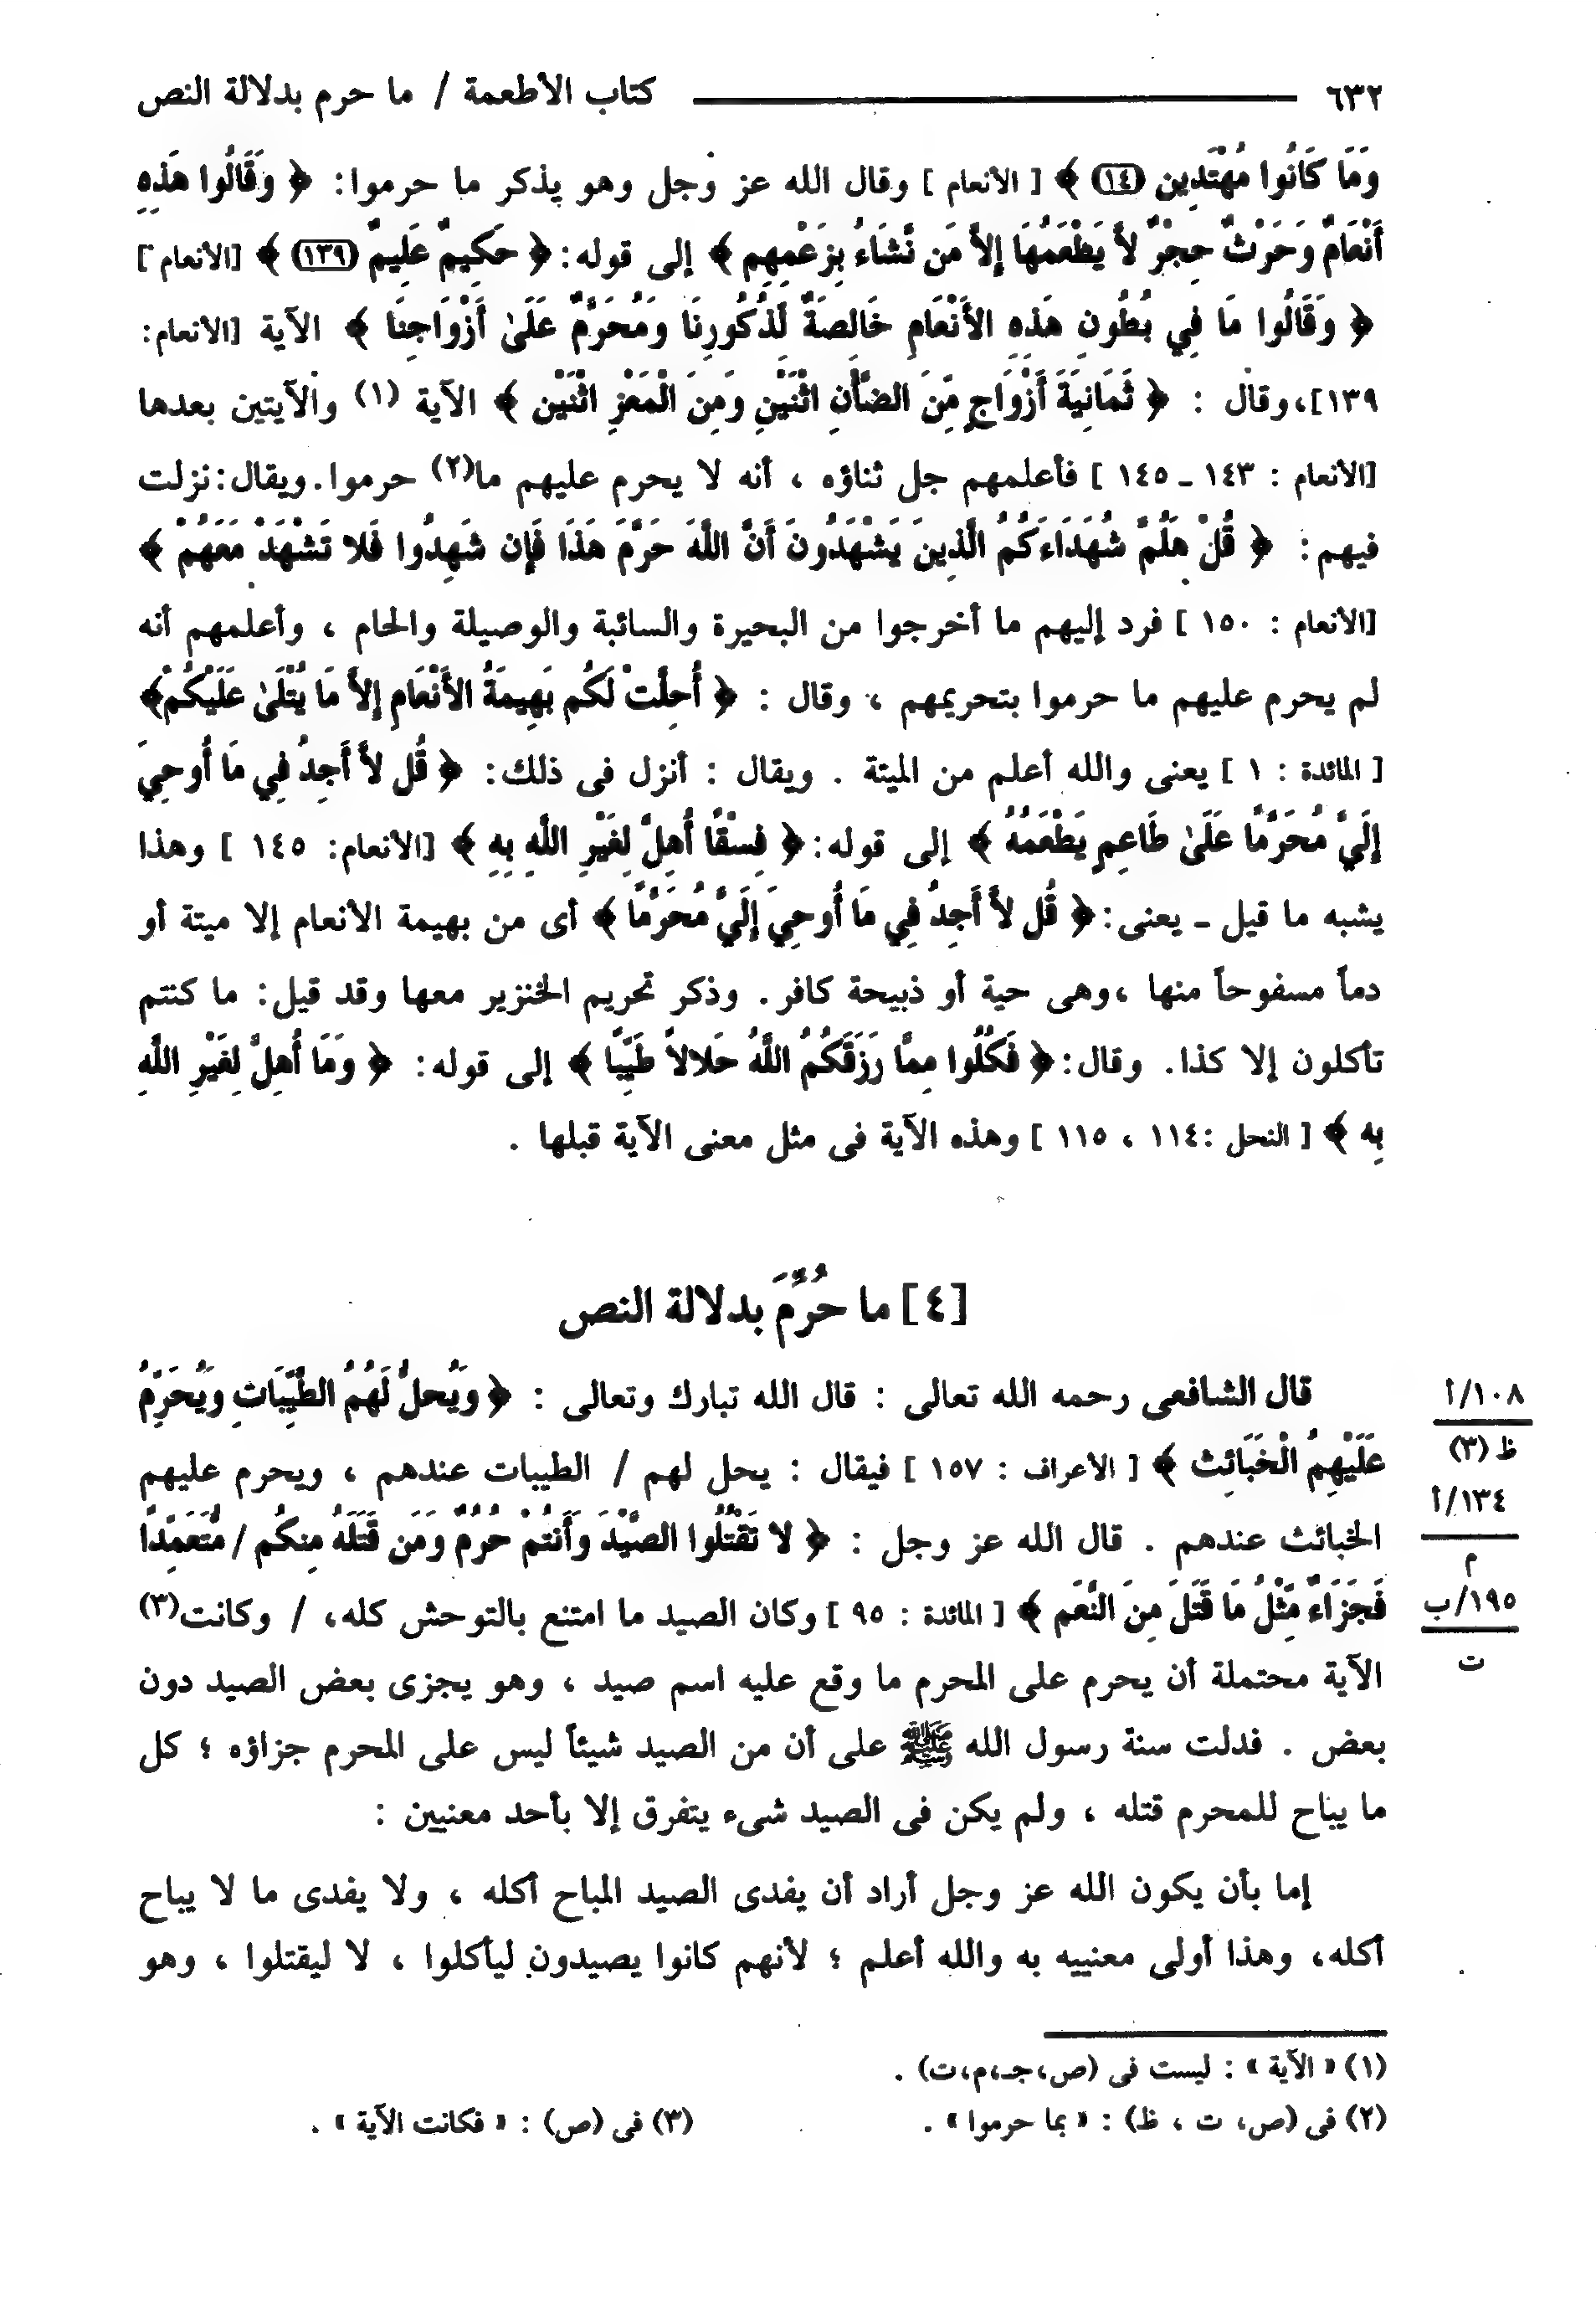 ٦٣٢ كتاب الأطعمة / ما حرم بدلالة النص
وَمَا كَانُوا مُهْتَدِين (١٤) ﴾ [ الأنعام ] وقال الله عز وجل وهو يذكر ما حرموا : ﴿ وَقَالُوا هَذِهِ
أَنْعَامٌ وَحَرْثٌ حِجْرٌ لاَّ يَطْعَمُهَا إِلاَّ مَن نَّشَاءُ بِزَعْمِهِم ﴾ إلى قوله : ﴿ حَكِيمٌ عَلِيمٌ (١٣٩) ﴾ [الأنعام ]
﴿ وَقَالُوا مَا فِي بُطُونِ هَذِهِ الأَنْعَامِ خَالِصَةٌ لِّذُكُورِنَا وَمُحَرَّمٌ عَلَىٰ أَزْوَاجِنَا ﴾ الآية [الأنعام :
١٣٩]، وقال : ﴿ ثَمَانِيَةَ أَزْوَاجٍ مِّنَ الضَّأْنِ اثْنَيْنِ وَمِنَ الْمَعْزِ اثْنَيْن ﴾ الآية (١) والآيتين بعدها
[الأنعام : ١٤٣ ـ ١٤٥ ] فأعلمهم جل ثناؤه ، أنه لا يحرم عليهم ما(٢) حرموا . ويقال : نزلت
فيهم : ﴿ قُلْ هَلُمَّ شُهَدَاءَكُمُ الَّذِينَ يَشْهَدُونَ أَنَّ اللَّهَ حَرَّمَ هَذَا فَإِن شَهِدُوا فَلا تَشْهَدْ مَعَهُمْ ﴾
[الأنعام : ١٥٠ ] فرد إليهم ما أخرجوا من البحيرة والسائبة والوصيلة والحام ، وأعلمهم أنه
لم يحرم عليهم ما حرموا بتحريمهم ، وقال : ﴿ أُحِلَّتْ لَكُم بَهِيمَةُ الأَنْعَامِ إِلاَّ مَا يُتْلَىٰ عَلَيْكُمْ ﴾
[ المائدة : ١ ] يعنى والله أعلم من الميتة . ويقال : أنزل فى ذلك : ﴿ قُل لاَّ أَجِدُ فِي مَا أُوحِيَ
إِلَيَّ مُحَرَّمًا عَلَىٰ طَاعِمٍ يَطْعَمُهُ ﴾ إلى قوله : ﴿ فِسْقًا أُهِلَّ لِغَيْرِ اللَّهِ بِهِ ﴾ [الأنعام : ١٤٥ ] وهذا
يشبه ما قيل ـ يعنى : ﴿ قُل لاَّ أَجِدُ فِي مَا أُوحِيَ إِلَيَّ مُحَرَّمًا ﴾ أى من بهيمة الأنعام إلا ميتة أو
دماً مسفوحاً منها ، وهى حية أو ذبيحة كافر . وذكر تحريم الخنزير معها وقد قيل : ما كنتم
تأكلون إلا كذا . وقال : ﴿ فَكُلُوا مِمَّا رَزَقَكُمُ اللَّهُ حَلالاً طَيِّبًا ﴾ إلى قوله : ﴿ وَمَا أُهِلَّ لِغَيْرِ اللَّهِ
بِه ﴾ [ النحل : ١١٤ ، ١١٥ ] وهذه الآية فى مثل معنى الآية قبلها .
[٤] ما حُرِّمَ بدلالة النص
قال الشافعى رحمه الله تعالى : قال الله تبارك وتعالى : ﴿ وَيُحِلُّ لَهُمُ الطَّيِّبَاتِ وَيُحَرِّمُ
١٠٨/أ
عَلَيْهِمُ الْخَبَائِث ﴾ [ الأعراف : ١٥٧ ] فيقال : يحل لهم / الطيبات عندهم ، ويحرم عليهم
ظ (٣)
١٣٤/أ
الخبائث عندهم . قال الله عز وجل : ﴿ لا تَقْتُلُوا الصَّيْدَ وَأَنتُمْ حُرُمٌ وَمَن قَتَلَهُ مِنكُم / مُّتَعَمِّدًا
م
فَجَزَاءٌ مِّثْلُ مَا قَتَلَ مِنَ النَّعَم ﴾ [ المائدة : ٩٥ ] وكان الصيد ما امتنع بالتوحش كله، / وكانت(٣)
١٩٥/ب
الآية محتملة أن يحرم على المحرم ما وقع عليه اسم صيد ، وهو يجزى بعض الصيد دون
ت
بعض . فدلت سنة رسول الله ﷺ على أن من الصيد شيئاً ليس على المحرم جزاؤه ؛ كل
ما يباح للمحرم قتله ، ولم يكن فى الصيد شىء يتفرق إلا بأحد معنيين :
إما بأن يكون الله عز وجل أراد أن يفدى الصيد المباح أكله ، ولا يفدى ما لا يباح
أكله، وهذا أولى معنييه به والله أعلم ؛ لأنهم كانوا يصيدون ليأكلوا ، لا ليقتلوا ، وهو
(١) « الآية » : ليست فى (ص،جـ،م،ت) .
(٢) فى (ص، ت ، ظ) : « بما حرموا » . (٣) فى (ص) : « فكانت الآية » .